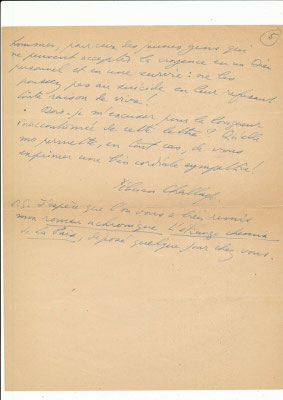 5
hommes, pour ceux des jeunes gens qui
ne peuvent accepter la croyance en un Dieu
personnel et en une survie : ne les
poussez pas au suicide en leur refusant
toute raison de vivre !
Dois-je m'excuser pour la longueur
inaccoutumée de cette lettre ? Qu'elle
me permette, en tout cas, de vous
exprimer une très cordiale sympathie !
Félicien Challaye
P.S. J'espère que l'on vous a bien remis
mon roman uchronique L'étrange chemin
de la Paix, déposé quelque jour chez vous.